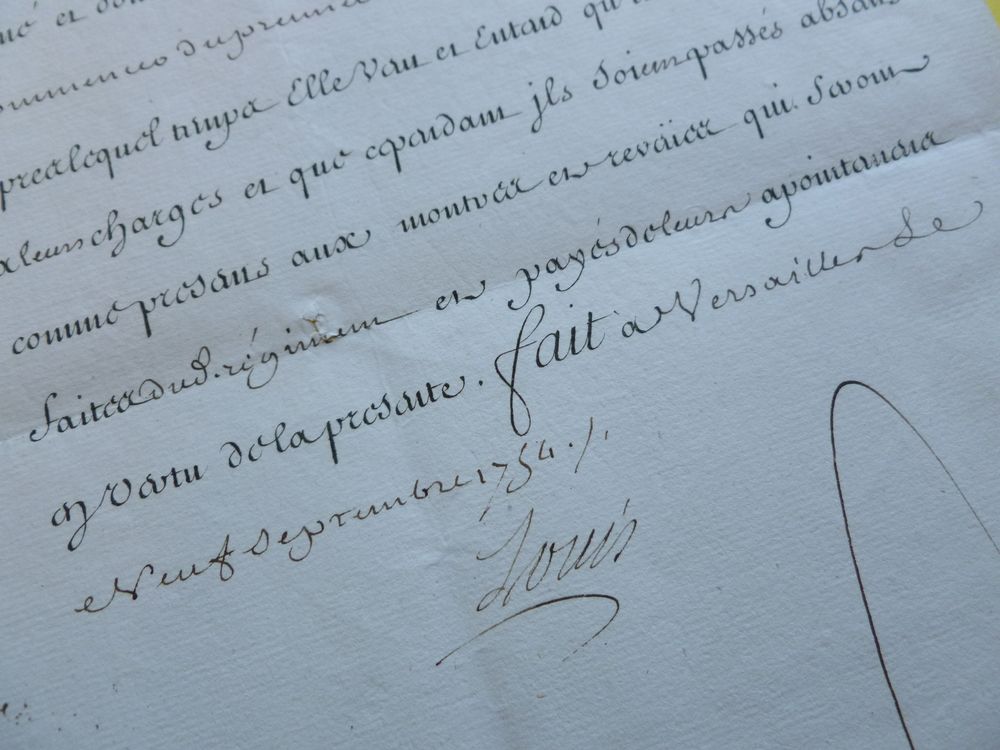 et don
commence du premier
prez lequel tempz Elle Veut et Entend qu'
a leurs charges et que cependant jls soient passés absans
comme presans aux montrez et reveüez qui. Seront
faitez dud. régiment et payés de leurs apointemens
en Vertu de la presente. fait a Versailles Le
Neuf Septembre 1754. /.
Louis